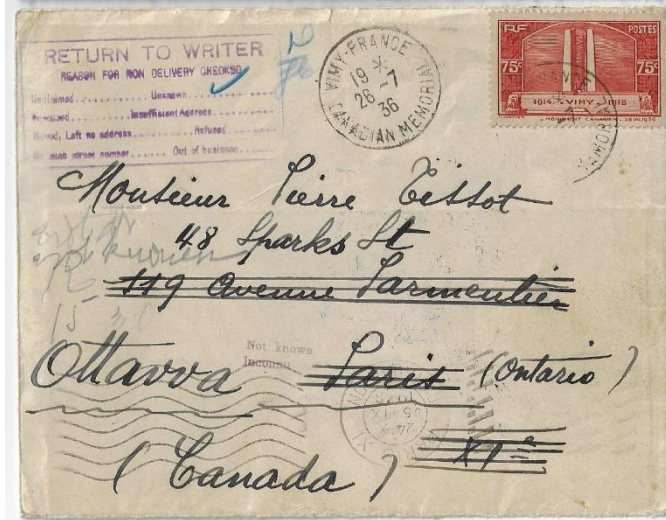 RETURN TO WRITER
REASON FOR NON DELIVERY CHECKED
Unclaimed Unknown
Insufficient Address
Moved, Left no address Refused
No such street number Out of business
VIMY-FRANCE
19 *
26 -7
36
CANADIAN MEMORIAL
RF POSTES
75c 75c
1914 VIMY 1918
Monsieur Pierre Tissot
48 Sparks St
119 Avenue Parmentier
not known
15
Not known
Inconnu
Ottawa Paris (Ontario)
XIe
(Canada)